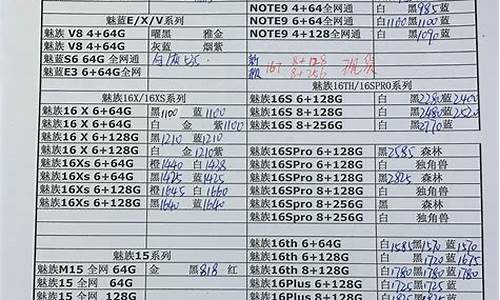 NOTE9 4+64全网通 白 黑985蓝
NOTE9 6+64全网通 白1100黑1100蓝
NOTE9 4+128全网通 白 黑1090蓝
魅蓝E/X/V系列
魅族 V8 4+64G 曜黑 雅金
魅族 V8 4+64G 灰蓝 烟紫
魅蓝S6 64G 全网通
魅蓝E3 6+64G全网通
16T 8+128
8+256
魅族16X/16XS系列
魅族16 X 6+64G 黑1100 蓝1100
魅族16 X 6+64G 白 金 紫1100
魅族16 X 6+128G 黑1210 蓝1210
魅族16 X 6+128G 白 金 1210紫
魅族16Xs 6+64G 橙1440 白1428
魅族16Xs 6+64G 黑1425 蓝1425
魅族16Xs 6+128G 橙1645 白1660
魅族16Xs 6+128G 黑1640 蓝1640
魅族16TH/16SPRO系列
魅族16S 6+128G 白 黑2280蓝2400
魅族16S 8+128G 白 黑2480蓝2520
魅族16S 8+256G 白 黑2770蓝
魅族16SPro 6+128G 黑2585 森林
魅族16SPro 6+128G 白 独角兽
魅族16SPro 8+128G 黑2825 森林
魅族16SPro 8+128G 白 独角兽
魅族16SPro 8+256G 黑 森林
魅族16SPro 8+256G 白 独角兽
魅族15系列
魅族M15 全网 64G 金 黑818 红
魅族15 全网 64G
魅族15 全网 128G
魅族16th 6+64G 白1585黑1570蓝1570
魅族16th 6+128G 白 黑1720蓝1675
魅族16th 8+128G 白1780黑1780蓝1780
魅族16Plus 6+128G 白1725黑1725蓝
魅族16Plus 8+128G